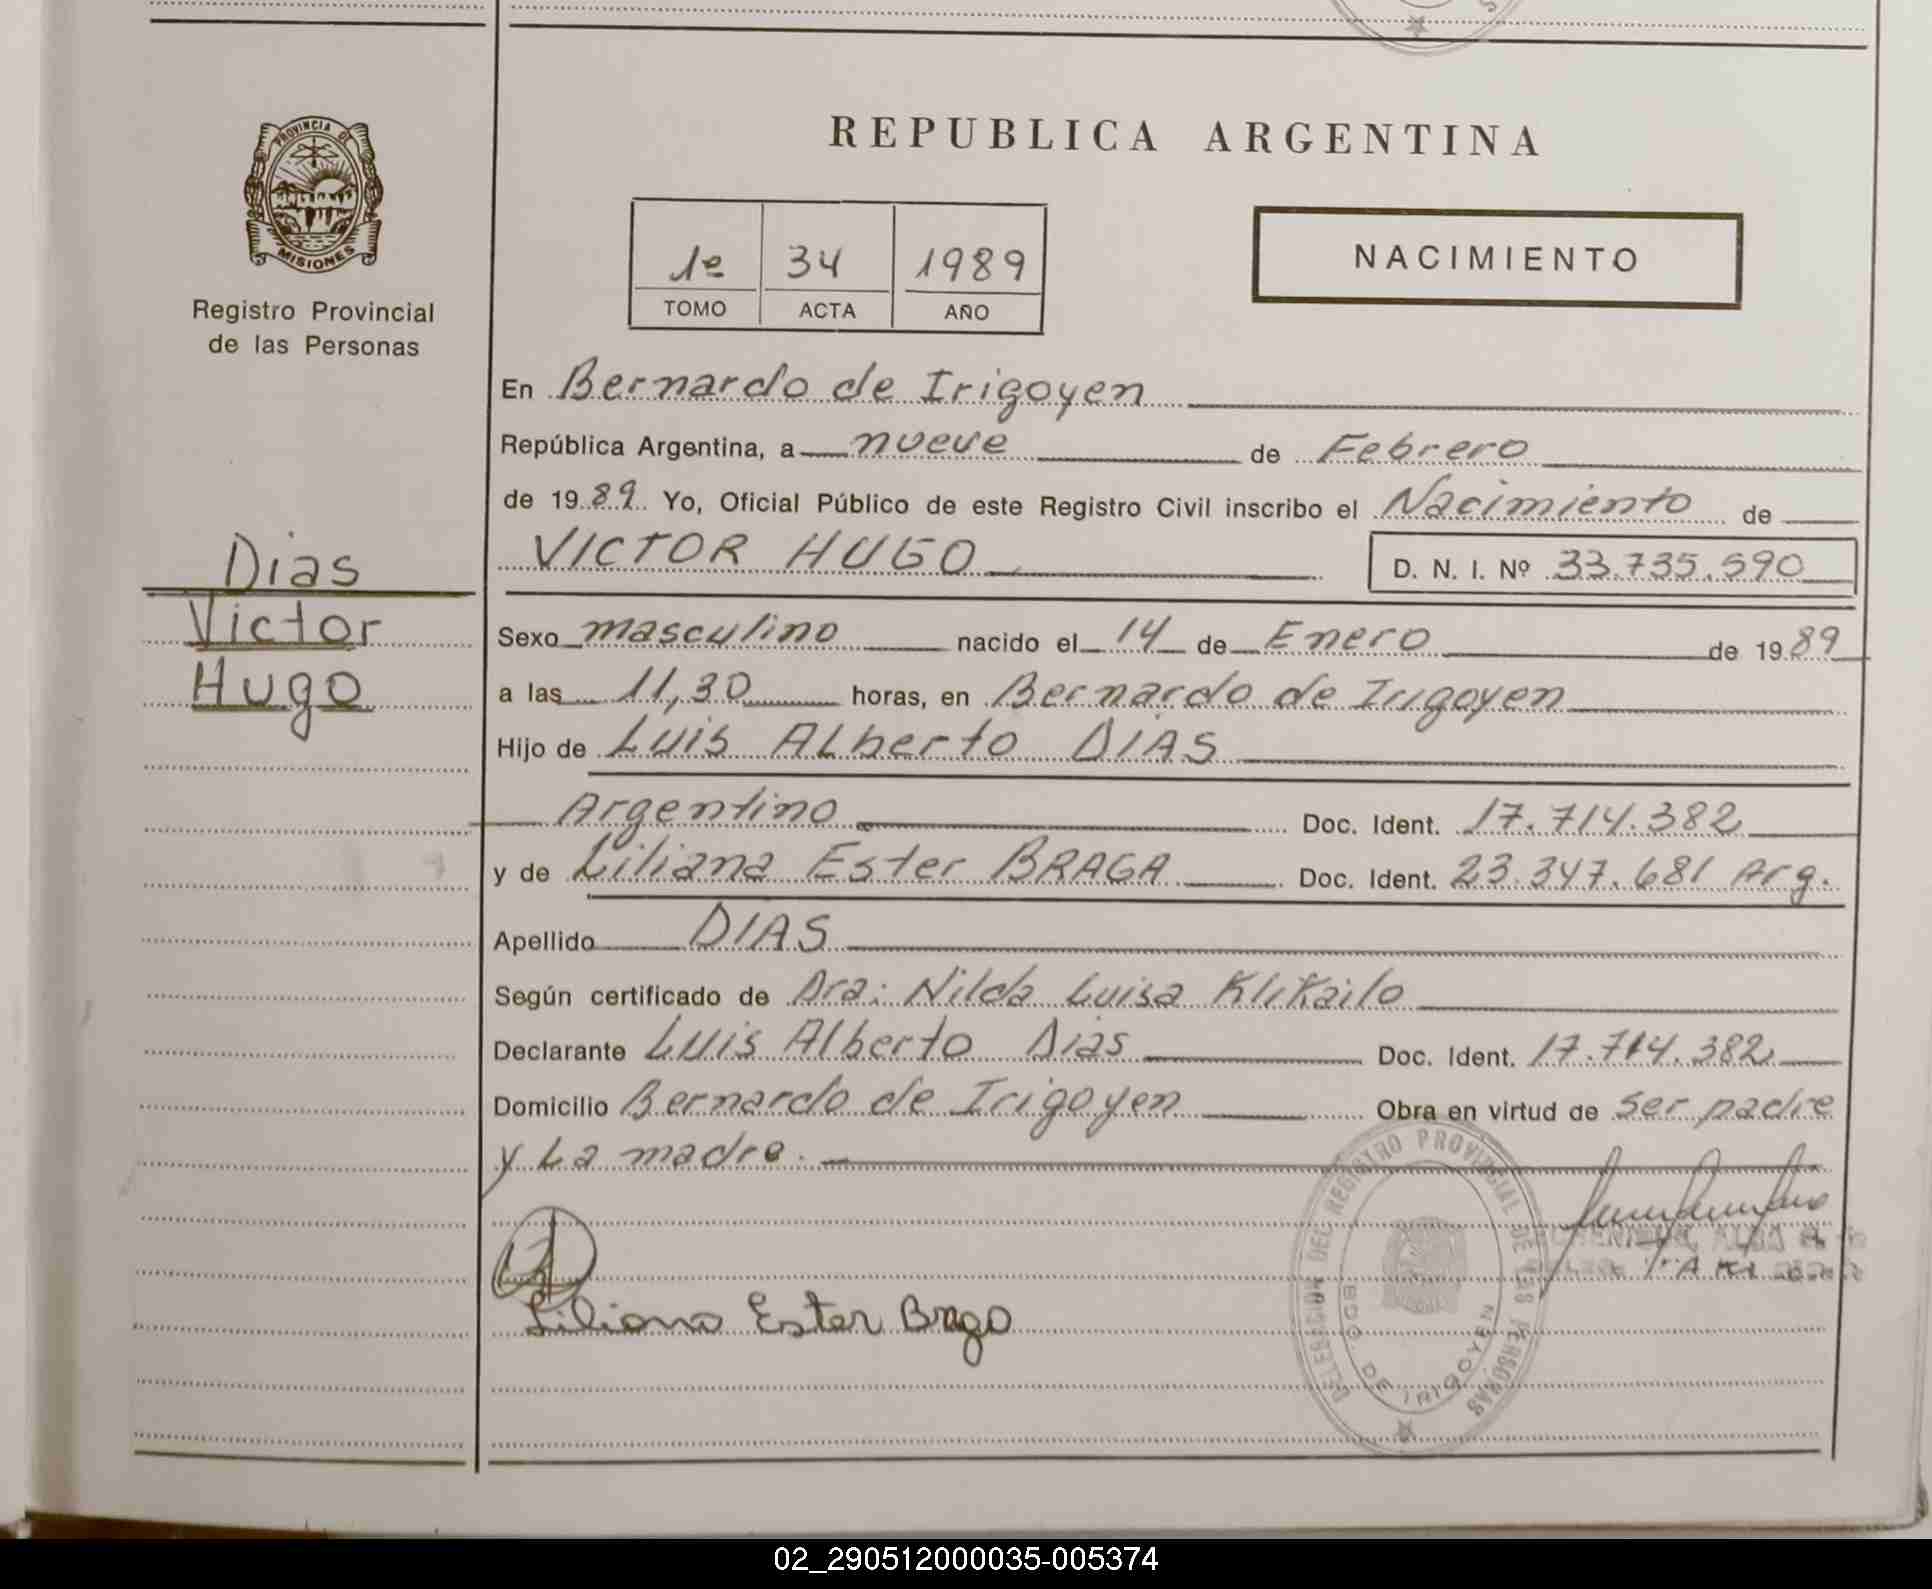 REPUBLICA ARGENTINA
PROVINCIA DE
MISIONES
Registro Provincial
de las Personas
1º 34 1989
TOMO ACTA AÑO
NACIMIENTO
Dias
Victor
Hugo
En Bernardo de Irigoyen
República Argentina, a nueve de Febrero
de 1989 Yo, Oficial Público de este Registro Civil inscribo el Nacimiento de
VICTOR HUGO D. N. I. Nº 33.735.590
Sexo masculino nacido el 14 de Enero de 1989
a las 11,30 horas, en Bernardo de Irigoyen
Hijo de Luis Alberto DIAS
Argentino Doc. Ident. 17.714.382
y de Liliana Ester BRAGA Doc. Ident. 23.347.681 Arg.
Apellido DIAS
Según certificado de Dra: Nilda Luisa Klikailo
Declarante Luis Alberto Dias Doc. Ident. 17.714.382
Domicilio Bernardo de Irigoyen Obra en virtud de ser padre
y La madre.
DELEGACION DEL REGISTRO PROVINCIAL DE LAS PERSONAS
DE IRIGOYEN
Liliana Ester Braga
02_290512000035-005374